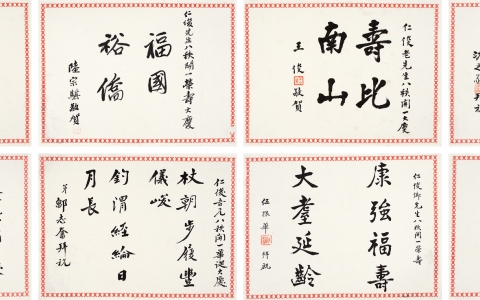 仁俊先生八秩開一榮壽大慶
福國
裕僑
陸宗騏敬賀
仁俊老先生八秩開一大慶
壽比
南山
王俊
敬賀
仁俊吾兄八秩開一華誕大慶
杖朝步履豐
儀峻
釣渭經綸日
月長
弟鄒志奮拜祝
仁俊鄉先生八秩開一榮壽
康強福壽
大耋延齡
伍振華
拜祝